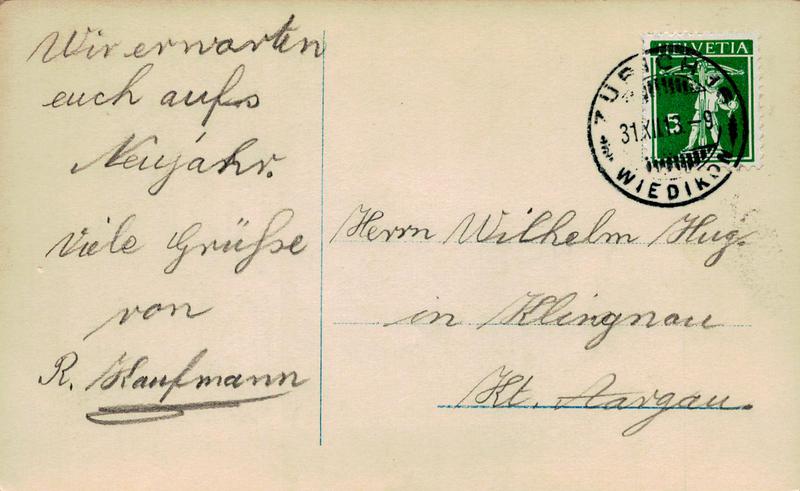 Wir erwarten
euch aufs
Neujahr.
Viele Grüße
von
R. Kaufmann
HELVETIA
5
ZÜRICH
31.XII.13.-9
WIEDIKON
Herrn Wilhelm Hug.
in Klingnau
Kt. Aargau.